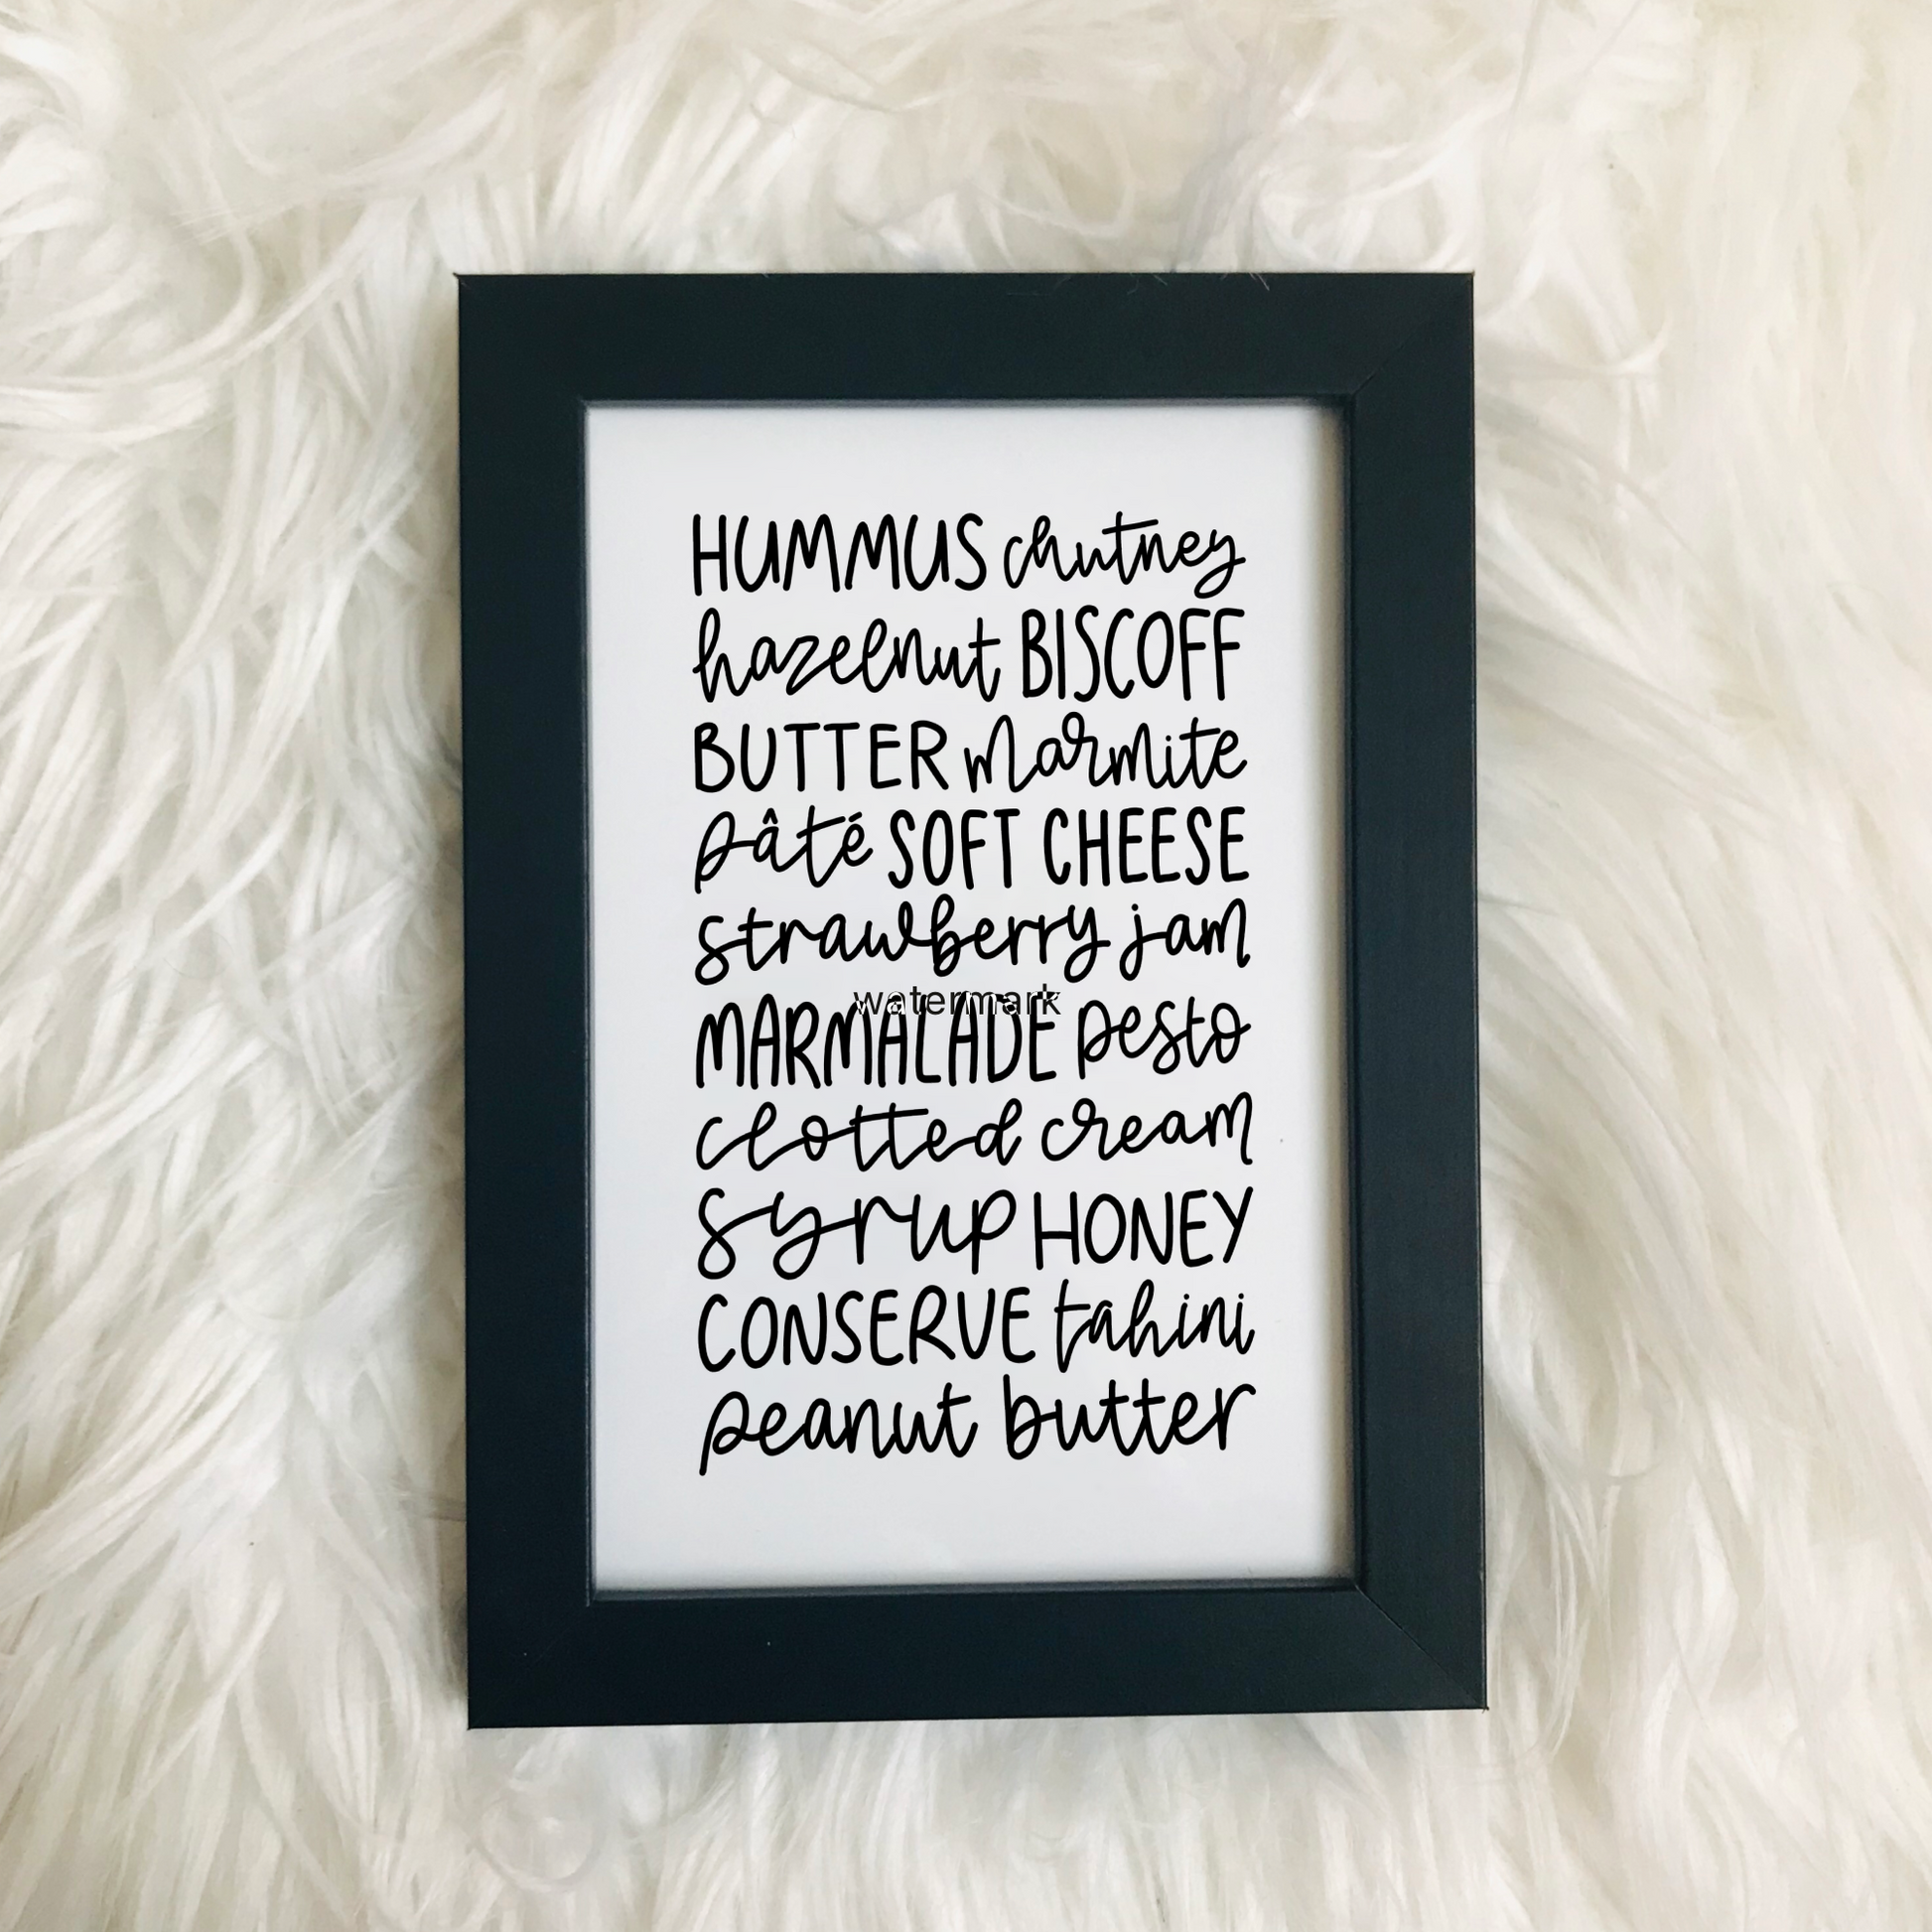 HUMMUS chutney
hazelnut BISCOFF
BUTTER marmite
pâté SOFT CHEESE
strawberry jam
watermark
MARMALADE pesto
clotted cream
syrup HONEY
CONSERVE tahini
peanut butter